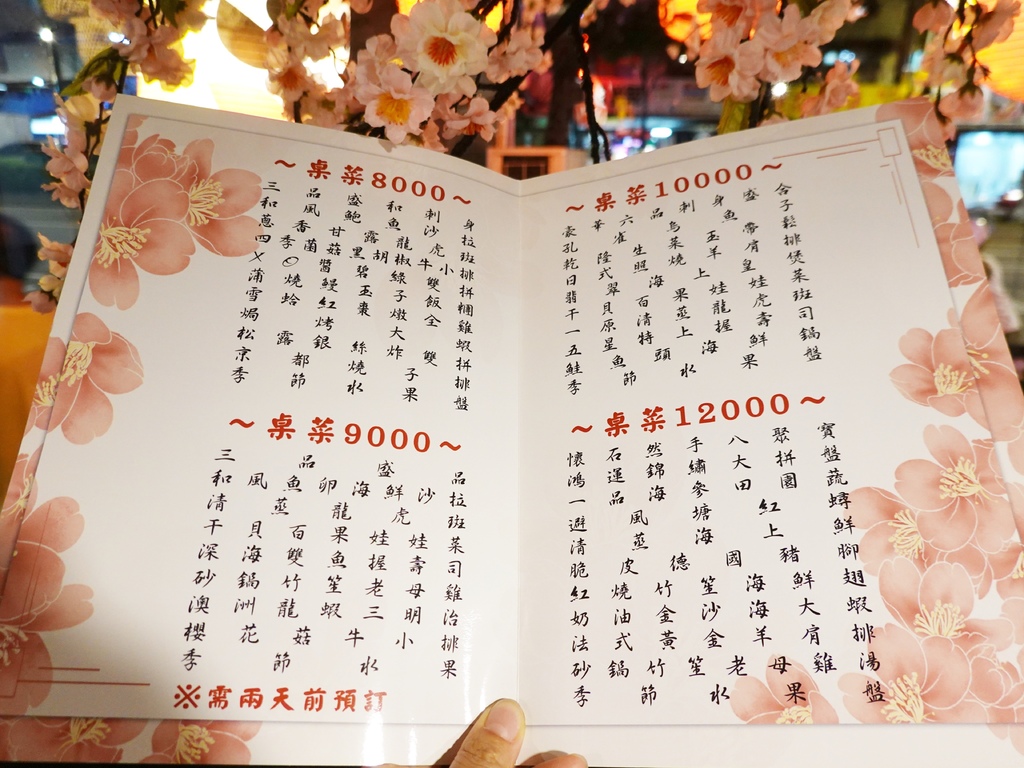 ～桌菜8000～
三品盛和刺身
和風鮑魚沙拉
蔥香甘露龍虎斑
四季菌菇黑胡椒牛小排
XO醬碧綠雙拼
蒲燒鰻玉子飯糰
雪蛤紅棗燉全雞
焗烤大蝦
松露銀絲炸雙拼
京都燒子排
季節水果盤
～桌菜9000～
三品盛品
和風魚卵海鮮沙拉
清蒸龍虎斑
干貝百果娃娃菜
深海雙魚握壽司
砂鍋竹笙老母雞
澳洲龍蝦三明治
櫻花菇牛小排
季節水果
※需兩天前預訂
～桌菜10000～
豪華六品刺身盛合
孔雀烏魚子
乾隆生菜玉帶鬆
日式照燒羊肩排
翡翠海上皇煲
干貝百果娃娃菜
一原清蒸龍虎斑
五星特上握壽司
鮭魚頭海鮮鍋
季節水果盤
～桌菜12000～
懷石然手八聚寶
鴻運錦繡大拼盤
一品海參田園蔬
避風塘海上紅蟳
清蒸海鮮
脆皮德國豬腳
紅燒竹笙海鮮翅
奶油金沙海大蝦
法式黃金羊肩排
砂鍋竹笙老母雞湯
季節水果盤